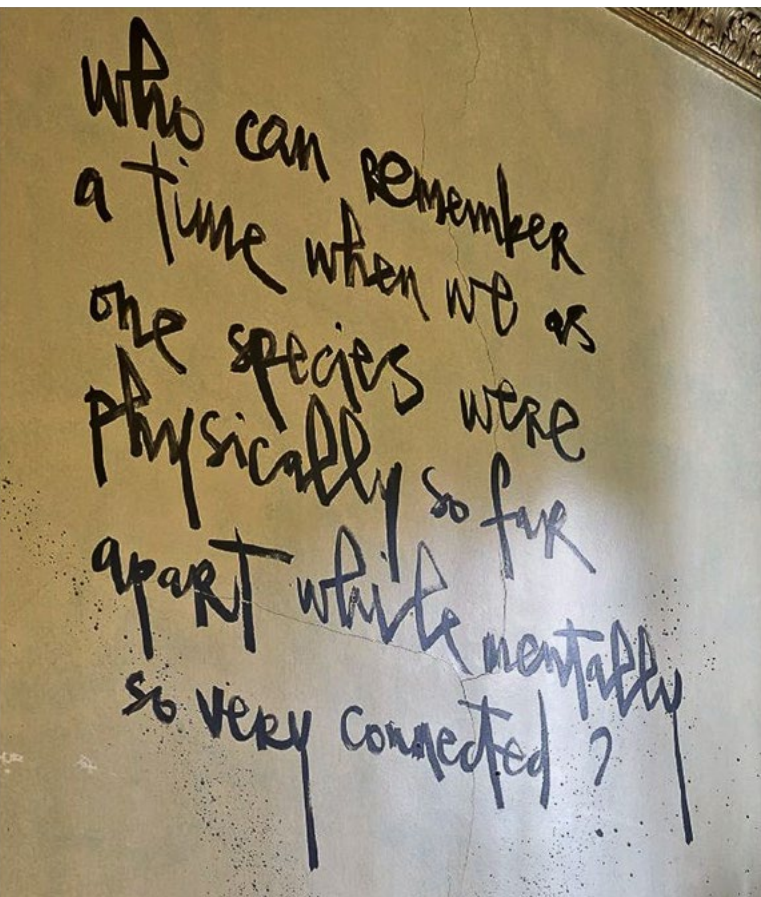 who can remember
a time when we as
one species were
physically so far
apart while mentally
so very connected ?